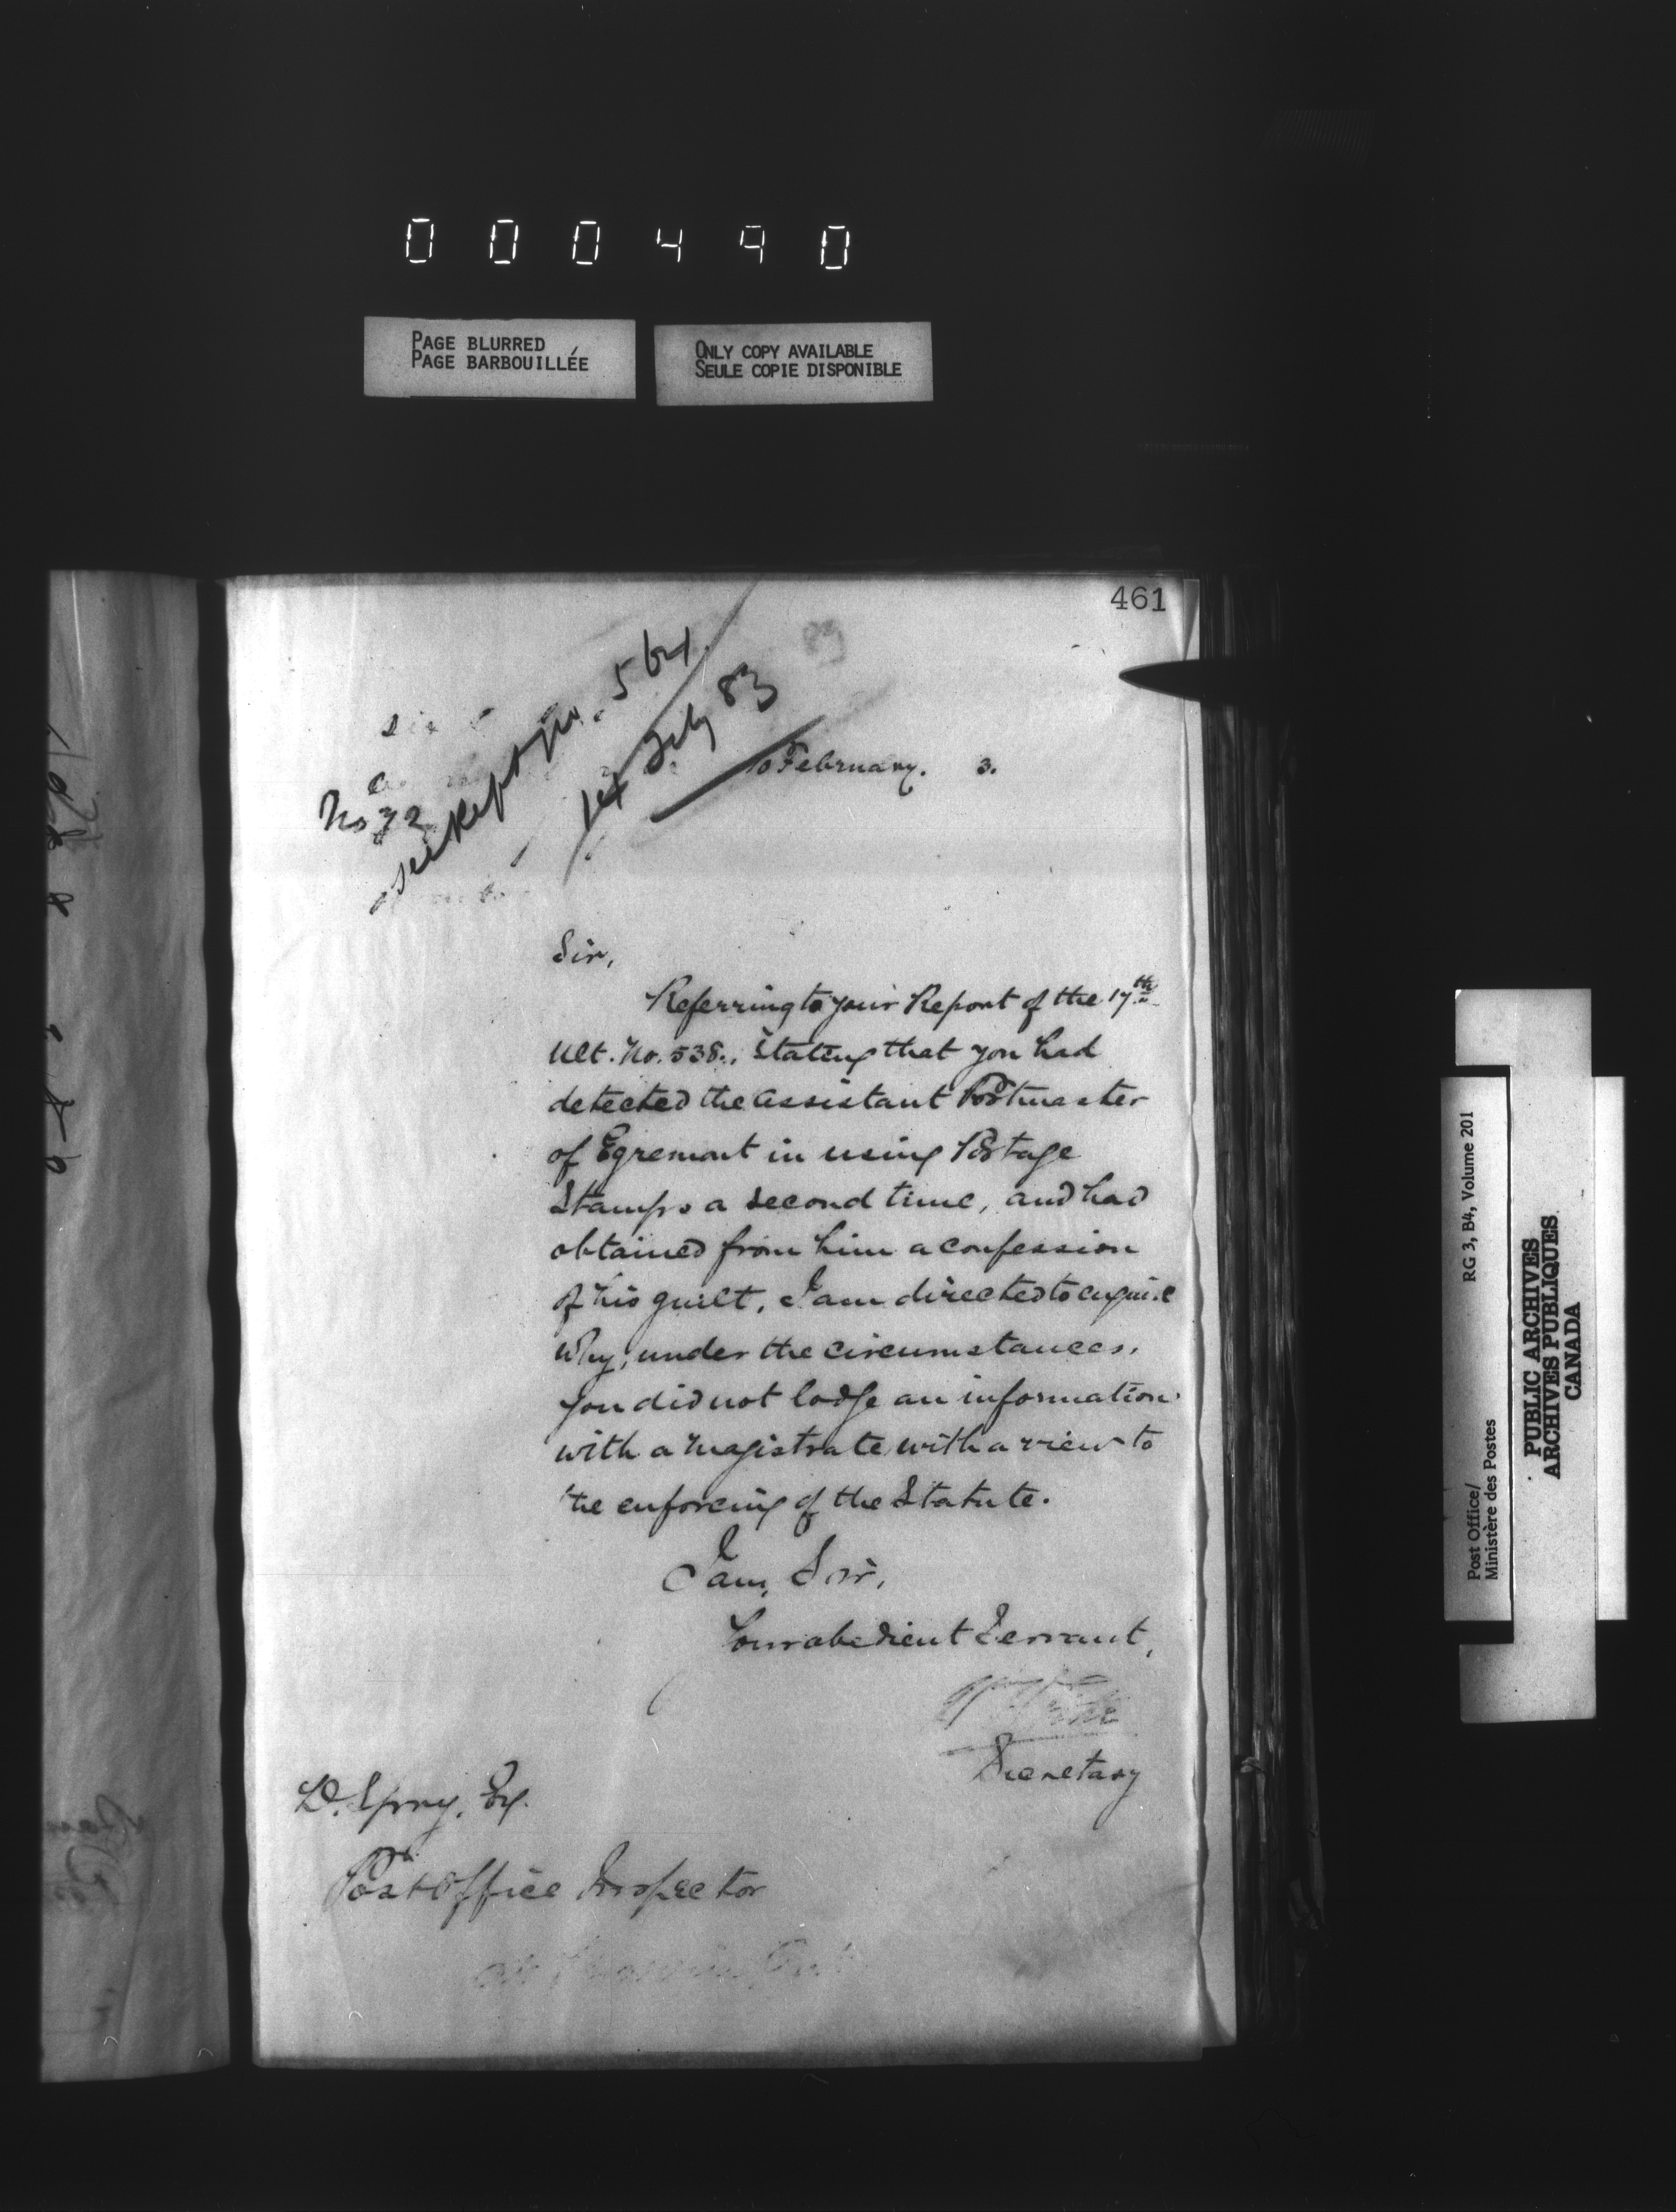 000490
PAGE BLURRED
PAGE BARBOUILLÉE
ONLY COPY AVAILABLE
SEULE COPIE DISPONIBLE
461
No 72
see Rept No. 564
Feby 83
10 February. 3.
Sir,
Referring to your Report of the 17th
Ult. No. 538., stating that you had
detected the Assistant Postmaster
of Egremont in using Postage
Stamps a second time, and had
obtained from him a confession
of his guilt, I am directed to enquire
why, under the circumstances,
you did not lodge an information
with a Magistrate with a view to
the enforcing of the Statute.
I am, Sir,
Your obedient Servant,
Secretary
D. Spry, Esq.
Post Office Inspector
Post Office/
Ministère des Postes
RG 3, B4, Volume 201
PUBLIC ARCHIVES
ARCHIVES PUBLIQUES
CANADA